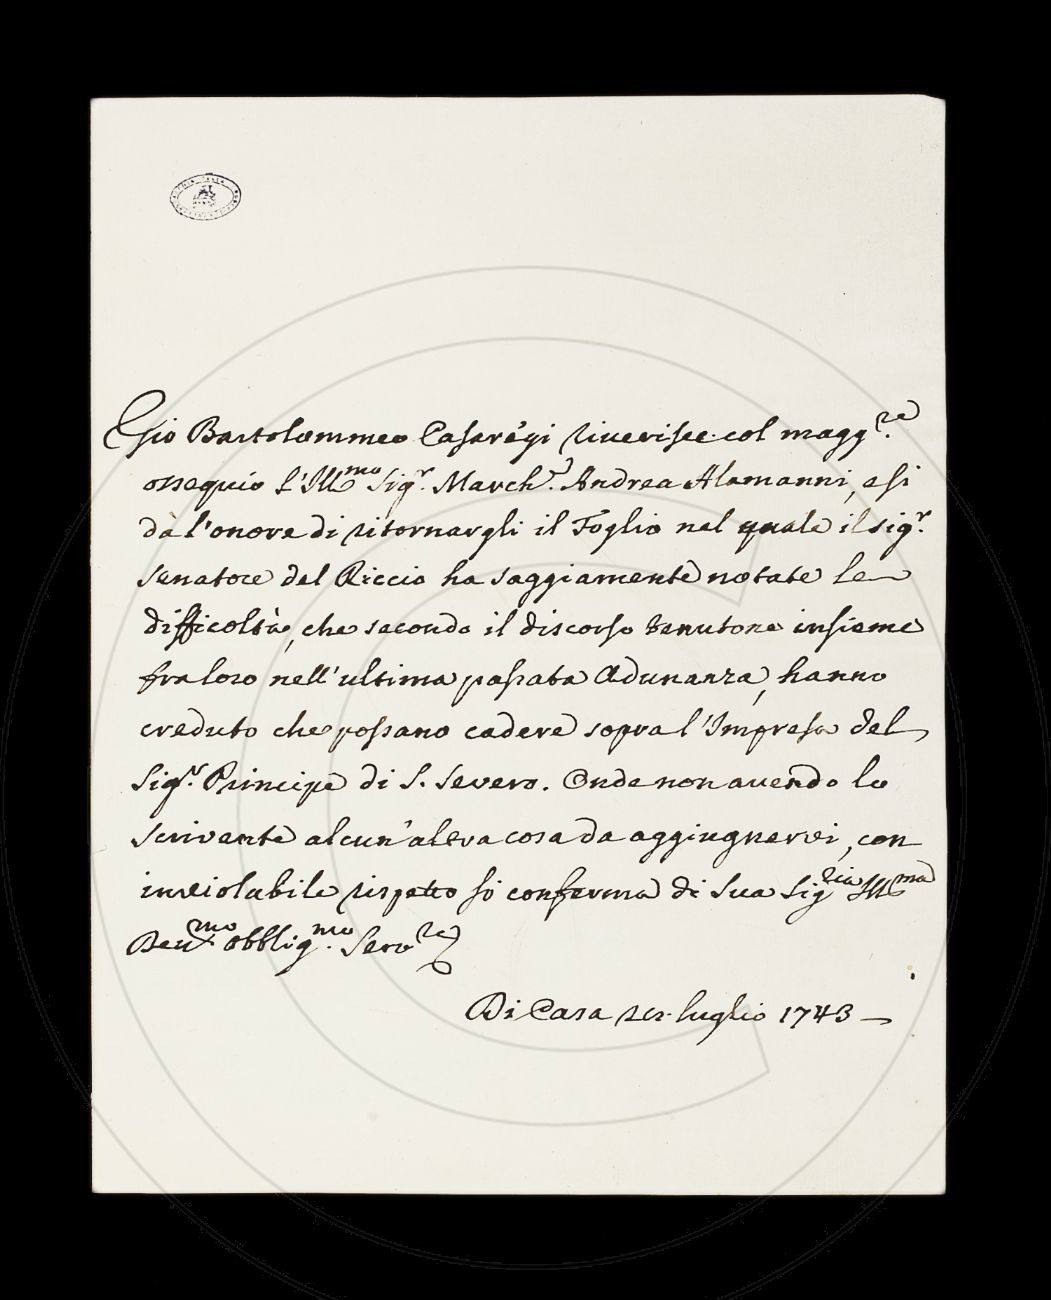 Gio Bartolommeo Casarégi riverisce col magg.re
ossequio l'Ill.mo Sig.r March.e Andrea Alamanni, e si
dà l'onore di ritornargli il Foglio nel quale il Sig.r
Senatore del Riccio ha saggiamente notate le
difficoltà, che secondo il discorso tenutone insieme
fra loro nell'ultima passata Adunanza, hanno
creduto che possano cadere sopra l'Impresa del
Sig.r Principe di S. Severo. Onde non avendo lo
scrivente alcun'altra cosa da aggiugnervi, con
inviolabile rispetto si conferma di Sua Sig.ria Ill.ma
Dev.mo obblig.mo Serv.re
Di Casa luglio 1743